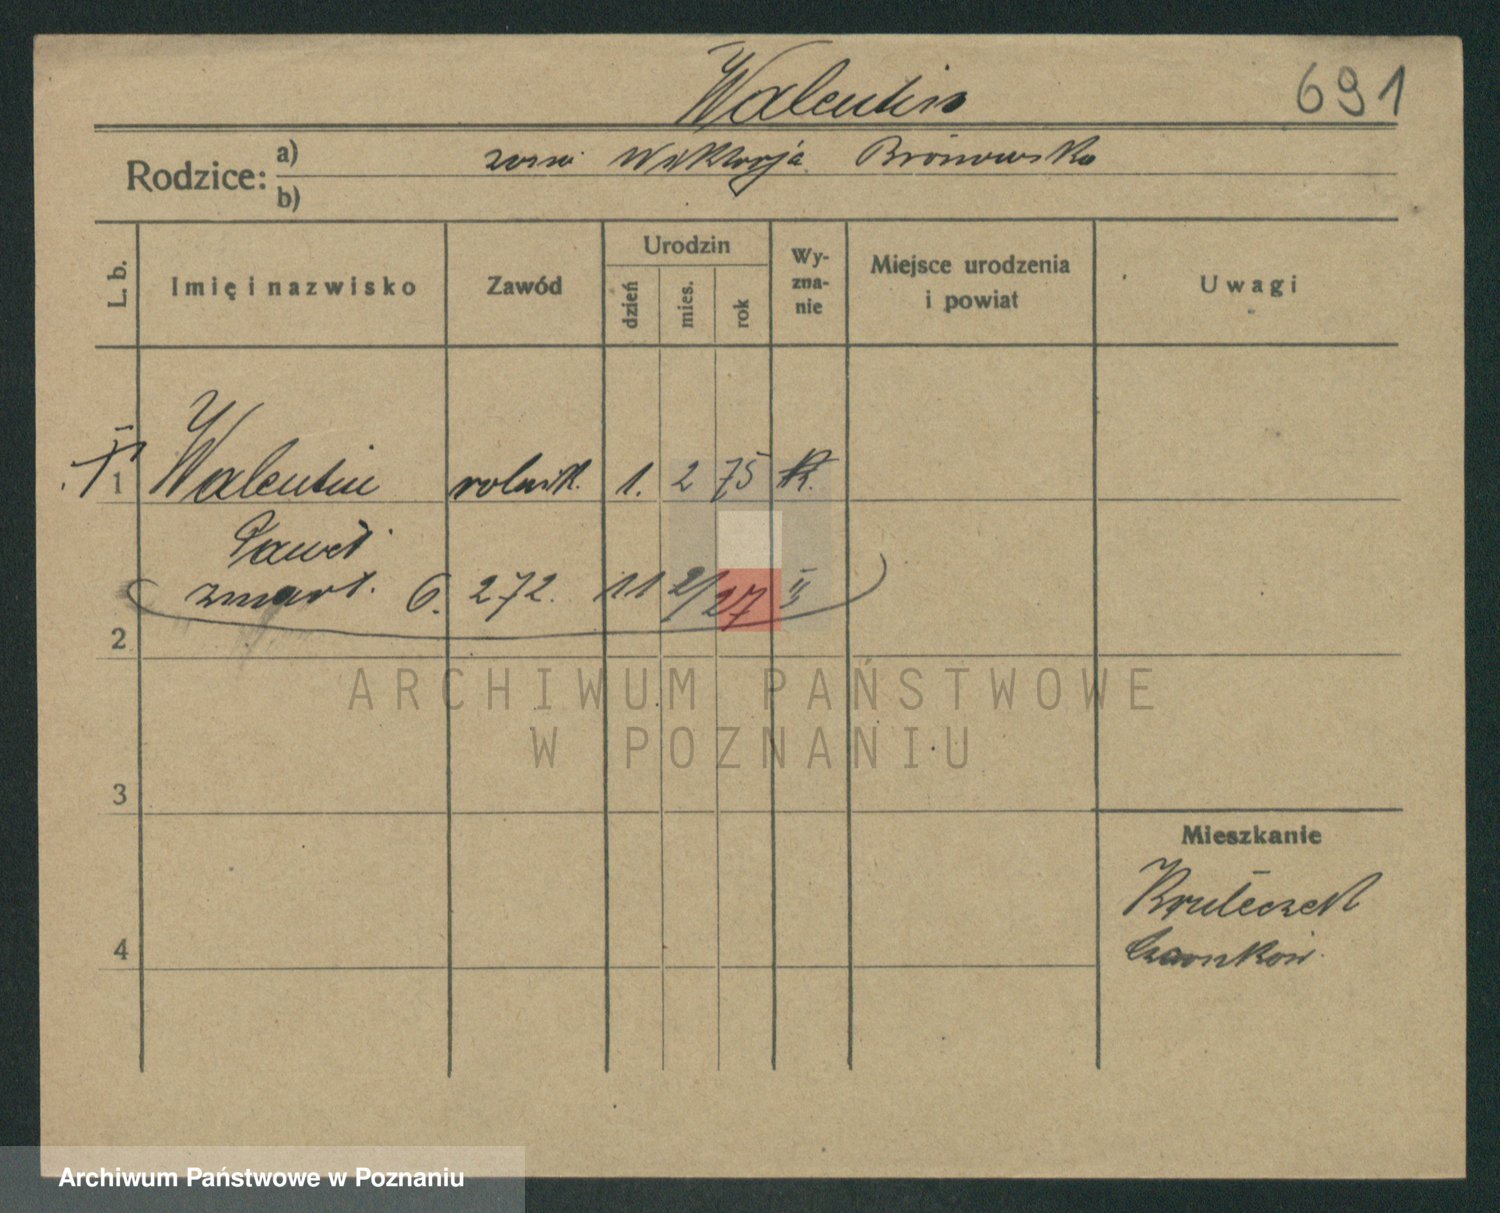 Walentin
691
Rodzice: a) żona Wiktorja Bronowska
b)
L. b.
Imię i nazwisko
Zawód
Urodzin
dzień
mies.
rok
Wy-
zna-
nie
Miejsce urodzenia
i powiat
Uwagi
1 Walentin rolnik. 1. 2 75 K.
Paweł
zmart. 6. 272. 11 2/27
2
ARCHIWUM PAŃSTWOWE
W POZNANIU
3
Mieszkanie
Kruteczek
Czarnków.
4
Archiwum Państwowe w Poznaniu